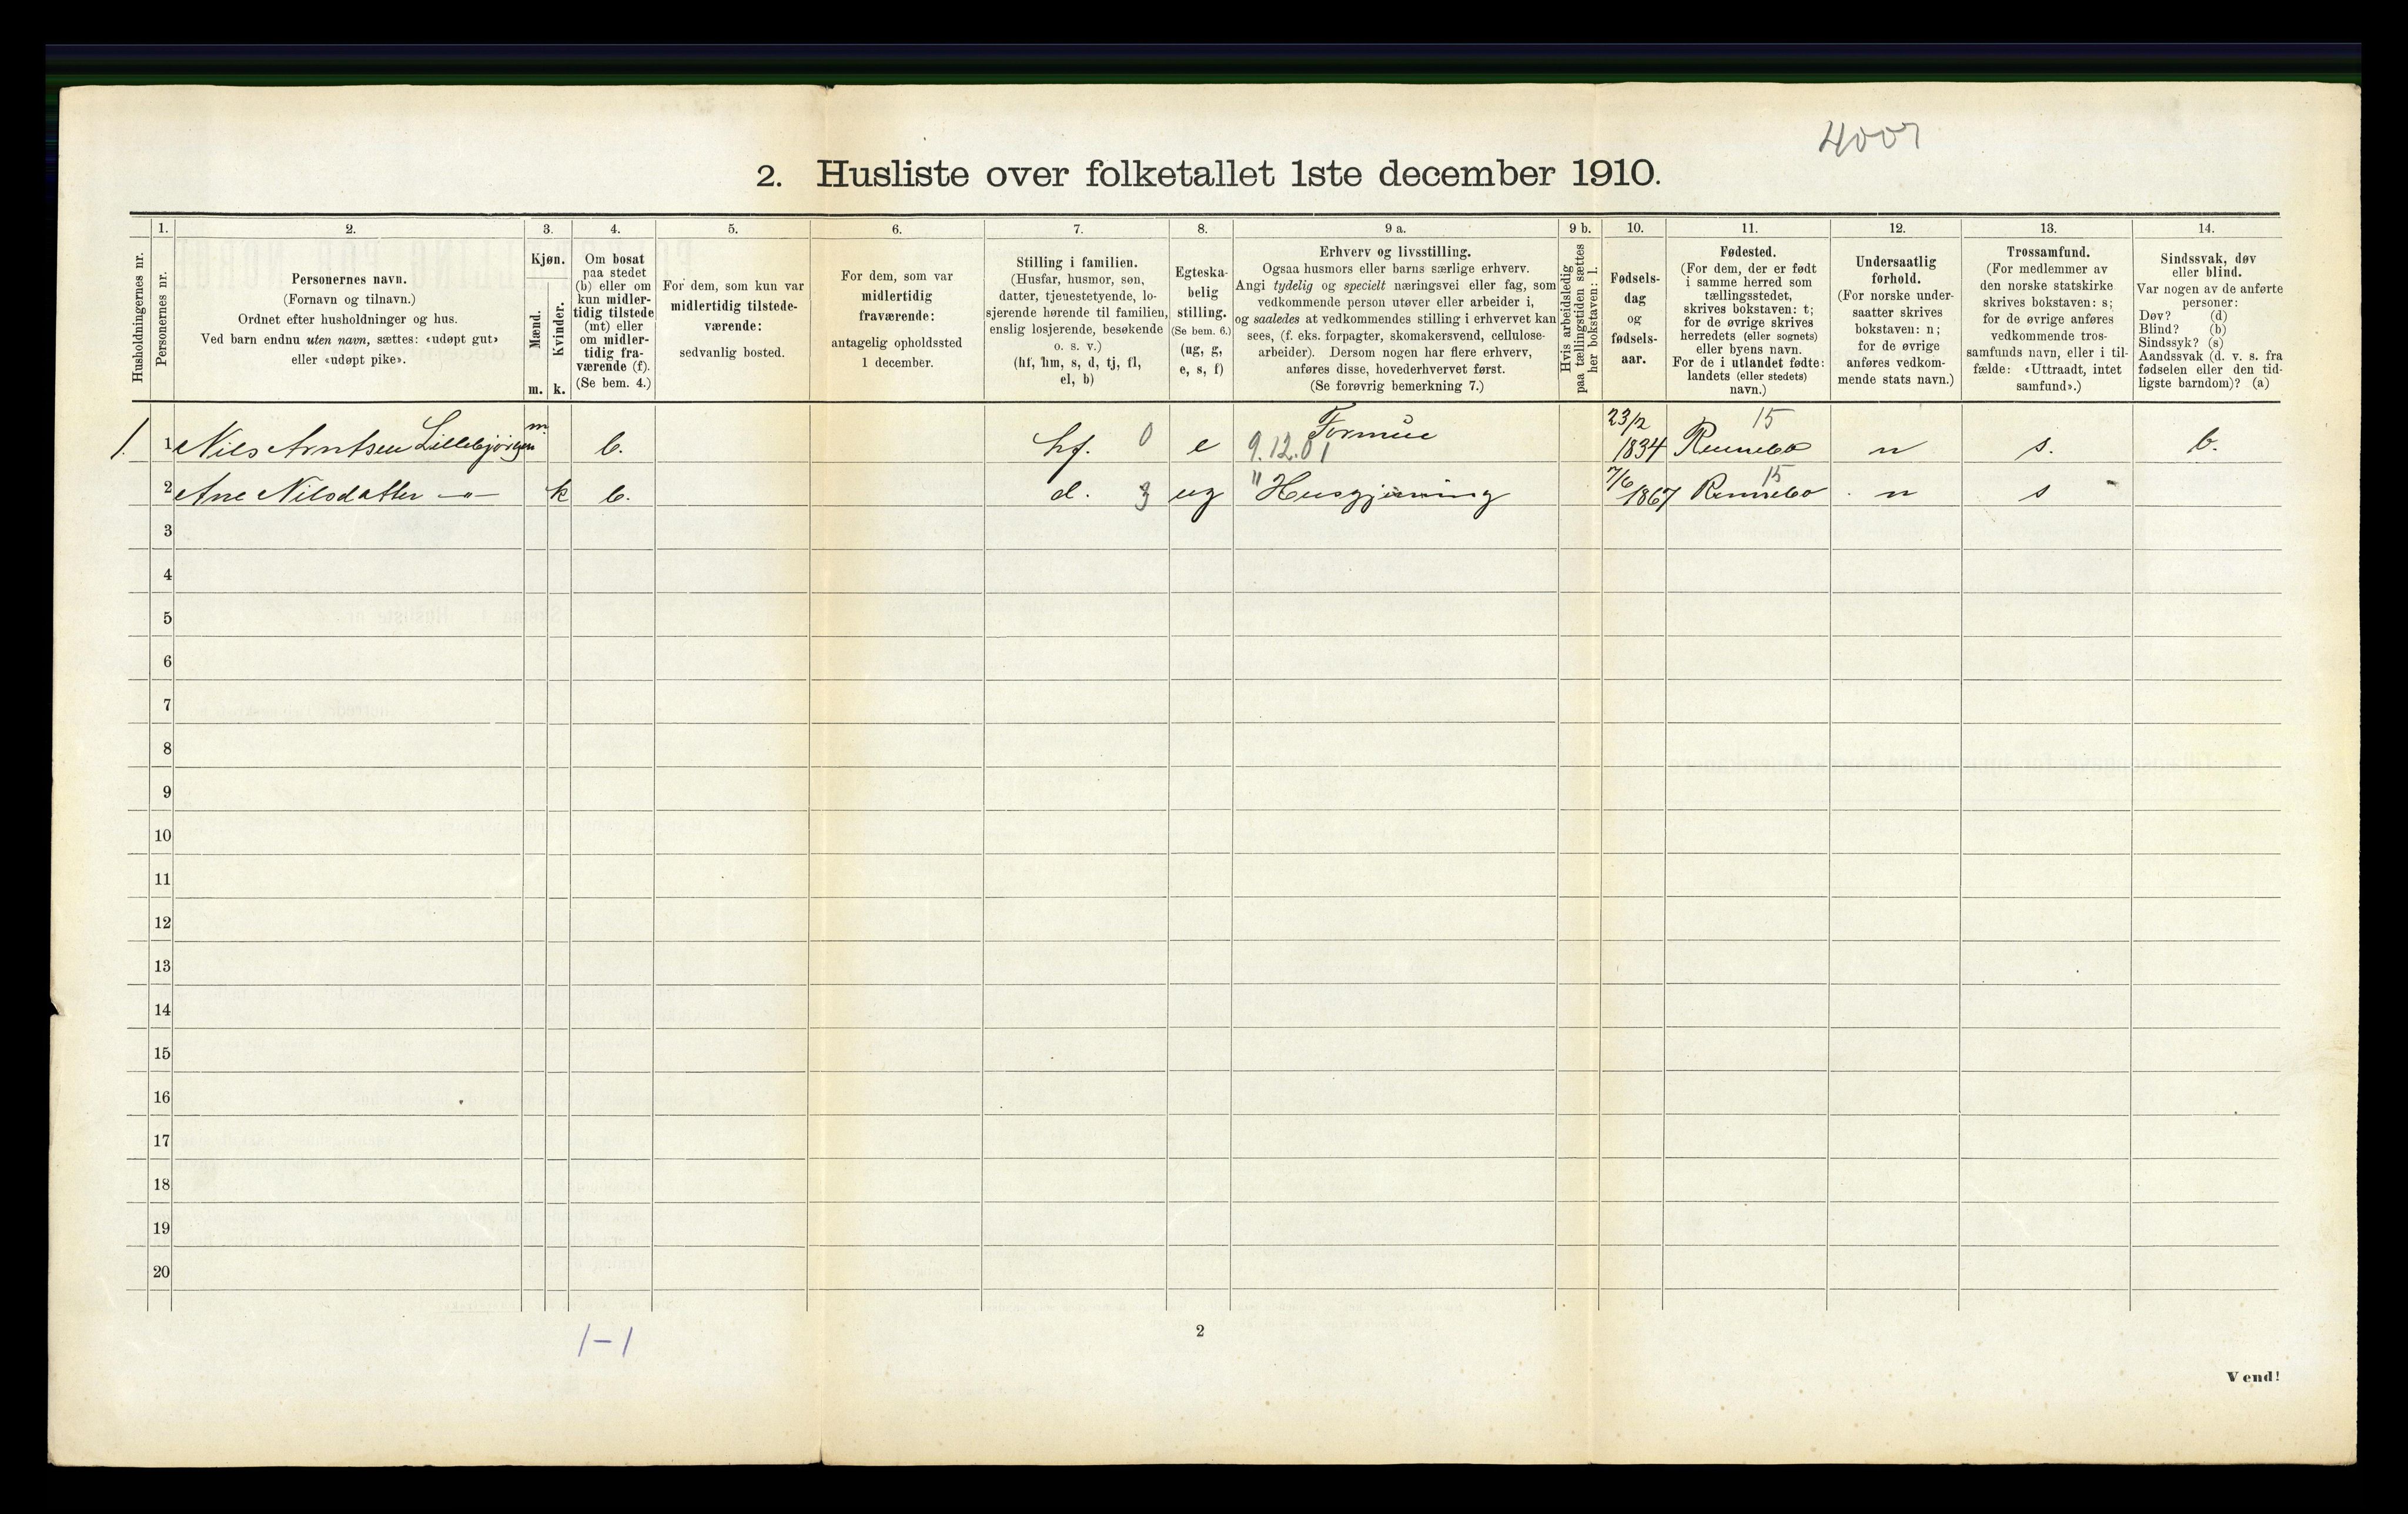 2. Husliste over folketallet 1ste december 1910.
Husholdningernes nr.
1.
Personernes nr.
2.
Personernes navn.
(Fornavn og tilnavn.)
Ordnet efter husholdninger og hus.
Ved barn endnu uten navn, sættes: «udøpt gut»
eller «udøpt pike».
3.
Kjøn.
Mænd.
m.
Kvinder.
k.
4.
Om bosat
paa stedet
(b) eller om
kun midler-
tidig tilstede
(mt) eller
om midler-
tidig fra-
værende (f).
(Se bem. 4.)
5.
For dem, som kun var
midlertidig tilstede-
værende:
sedvanlig bosted.
6.
For dem, som var
midlertidig
fraværende:
antagelig opholdssted
1 december.
7.
Stilling i familien.
(Husfar, husmor, søn,
datter, tjenestetyende, lo-
sjerende hørende til familien,
enslig losjerende, besøkende
o. s. v.)
(hf, hm, s, d, tj, fl,
el, b)
8.
Egteska-
belig
stilling.
(Se bem. 6.)
(ug, g,
e, s, f)
9 a.
Erhverv og livsstilling.
Ogsaa husmors eller barns særlige erhverv.
Angi tydelig og specielt næringsvei eller fag, som
vedkommende person utøver eller arbeider i,
og saaledes at vedkommendes stilling i erhvervet kan
sees, (f. eks. forpagter, skomakersvend, cellulose-
arbeider). Dersom nogen har flere erhverv,
anføres disse, hovederhvervet først.
(Se forøvrig bemerkning 7.)
9 b.
Hvis arbeidsledig
paa tællingstiden sættes
her bokstaven: l.
10.
Fødsels-
dag
og
fødsels-
aar.
11.
Fødested.
(For dem, der er født
i samme herred som
tællingsstedet,
skrives bokstaven: t;
for de øvrige skrives
herredets (eller sognets)
eller byens navn.
For de i utlandet fødte:
landets (eller stedets)
navn.)
12.
Undersaatlig
forhold.
(For norske under-
saatter skrives
bokstaven: n;
for de øvrige
anføres vedkom-
mende stats navn.)
13.
Trossamfund.
(For medlemmer av
den norske statskirke
skrives bokstaven: s;
for de øvrige anføres
vedkommende tros-
samfunds navn, eller i til-
fælde: «Uttraadt, intet
samfund».)
14.
Sindssvak, døv
eller blind.
Var nogen av de anførte
personer:
Døv? (d)
Blind? (b)
Sindssyk? (s)
Aandssvak (d. v. s. fra
fødselen eller den tid-
ligste barndom)? (a)
1. 1 Nils Arntsen Lillebjørgen m. b. hf. 0 e 9.12.01 Formue 23/2 1834 15 Rennebo n s. b.
2 Ane Nilsdatter —"— k b. d. 3 ug " Husgjerning 7/6 1867 15 Rennebo n s
3
4
5
6
7
8
9
10
11
12
13
14
15
16
17
18
19
20
1–1
2
Vend!